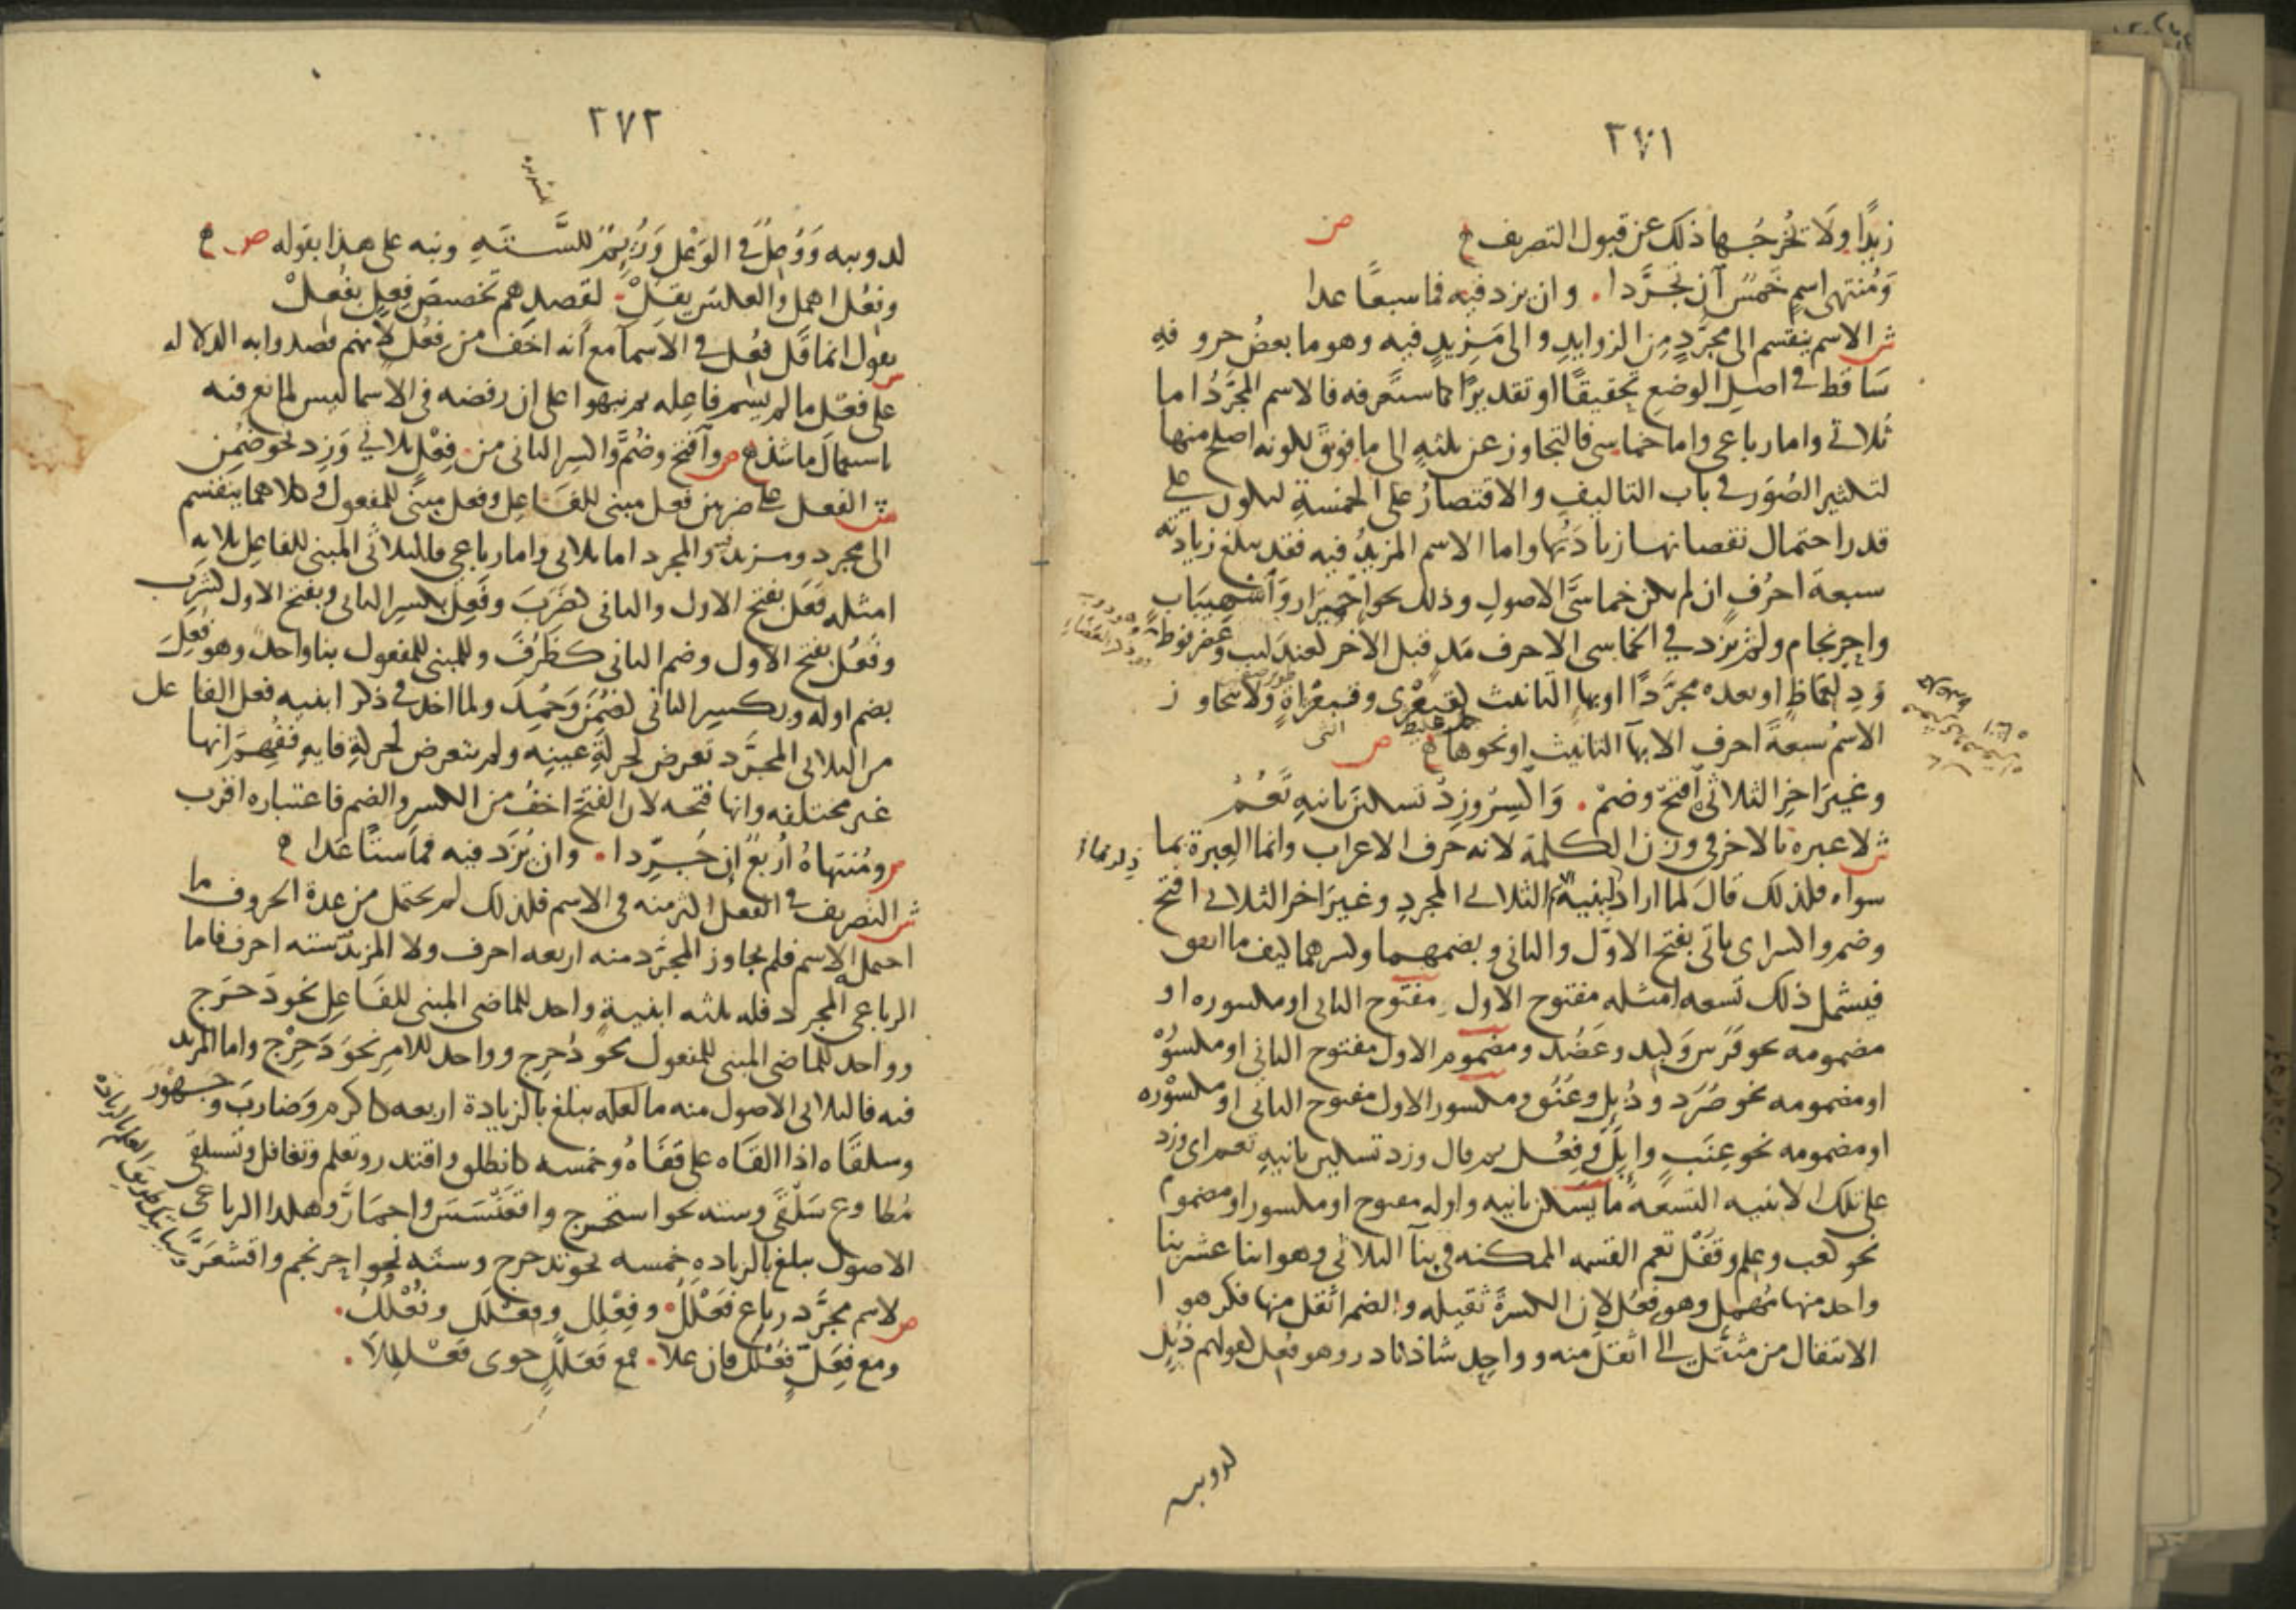 ٢٧١
زيدًا ولا تخرجها ذلك عن قبول التصريف ص
ومنتهى اسم خمس ان تجردا . وان يزد فيه فما سبعًا عدا
ش الاسم ينقسم الى مجرد من الزوايد والى مزيد فيه وهو ما بعض حروفه
ساقط في اصل الوضع تحقيقًا او تقديرًا كما ستعرفه فالاسم المجرد اما
ثلاثي واما رباعي واما خماسي فالتجاوز عن ثلثه الى ما فوق لكونه اصلح منها
لتكثير الصور في باب التاليف والاقتصار على الخمسة ليكون على
قدر احتمال نقصانها زيادتها واما الاسم المزيد فيه فقد يبلغ زيادته
سبعة احرف ان لم يكن خماسي الاصول وذلك نحو احميرار واشهيباب
واحرنجام ولم يزد في الخماسي الا حرف مد قبل الآخر كعندليب وعضرفوط
ودلعماظ او بعده مجردًا او بها التانيث كقبعثرى وقبعثراة ولا يتجاوز
الاسم سبعة احرف الا بها التانيث او نحوها ص
وغير اخر الثلاثي افتح وضم . واكسر وزد تسكين ثانيه تعم
ش لا عبرة بالاخر في وزن الكلمة لانه حرف الاعراب وانما العبرة بما
سواه فلذلك قال لما اراد ابنية الثلاثي المجرد وغير اخر الثلاثي افتح
وضم واكسر اى ياتي بفتح الاول والثاني وبضمهما وكسرهما كيف ما اتفق
فيشمل ذلك تسعه امثله مفتوح الاول مفتوح الثاني او مكسوره او
مضمومه نحو فرس وكبد وعضد ومضموم الاول مفتوح الثاني او مكسوره
او مضمومه نحو صرد ودئل وعنق ومكسور الاول مفتوح الثاني او مكسوره
او مضمومه نحو عنب وابل وفعل ثم قال وزد تسكين ثانيه تعم اى وزد
على تلك الابنيه التسعة ما يسكن ثانيه واوله مفتوح او مكسور او مضموم
نحو كعب وعلم وقفل تعم القسمه الممكنه في بنآ الثلاثي وهو اثنا عشر بنا
واحد منها مهمل وهو فعل لان الكسرة ثقيله والضم اثقل منها فكرهوا
الانتقال من مثقل الى اثقل منه وواحد شاذ نادر وهو فعل كقولهم دئل
لدويبه
٢٧٢
لدويبه ووعل في الوعل ورئم للسته ونبه على هذا بقوله ص
وفعل اهمل والعكس يقل . لقصدهم تخصيص فعل بفعل
ش يقول انما قل فعل في الاسمآ مع انه اخف من فعل لانهم قصدوا به الدلاله
على فعل ما لم يسم فاعله ثم نبهوا على ان رفضه في الاسما ليس لمانع فيه
باستعمال ما شذ ص وافتح وضم واكسر الثاني من . فعل ثلاثي وزد نحو ضمن
ش الفعل على ضربين فعل مبني للفاعل وفعل مبني للمفعول وكلاهما ينقسم
الى مجرد ومزيد والمجرد اما ثلاثي واما رباعي فالثلاثي المبني للفاعل ثلاثه
امثله فعل بفتح الاول والثاني كضرب وفعل بكسر الثاني وبفتح الاول كشرب
وفعل بفتح الاول وضم الثاني كظرف وللمبني للمفعول بنا واحد وهو فعل
بضم اوله وبكسر الثاني كضمن وحمد ولما اخذ في ذكر ابنيه فعل الفاعل
من الثلاثي المجرد تعرض لحركة عينه ولم يتعرض لحركة فايه ففهم انها
غير مختلفه وانها فتحه لان الفتح اخف من الكسر والضم فاعتباره اقرب
ص ومنتهاه اربع ان جردا . وان يزد فيه فما ستا عدا
ش التصريف في الفعل اكثر منه في الاسم فلذلك لم يحتمل من عدة الحروف ما
احتمله الاسم فلم يجاوز المجرد منه اربعه احرف ولا المزيد سته احرف فاما
الرباعي المجرد فله ثلثه ابنية واحد للماضي المبني للفاعل نحو دحرج
وواحد للماضي المبني للمفعول نحو دحرج وواحد للامر نحو دحرج واما المزيد
فيه فالثلاثي الاصول منه يبلغ بالزيادة اربعه كاكرم وضارب وجهور
وسلقاه اذا القاه على قفاه وخمسه كانطلق واقتدر وتعلم وتغافل وتسلقى
مطاوع سلقى وسته نحو استخرج واقعنسس واحمار وهكذا الرباعي
الاصول يبلغ بالزياده خمسه نحو تدحرج وسته نحو احرنجم واقشعر
ص لاسم مجرد رباع فعلل . وفعلل وفعلل وفعلل .
ومع فعل فعلل فان علا . فمع فعلل حوى فعلللا .